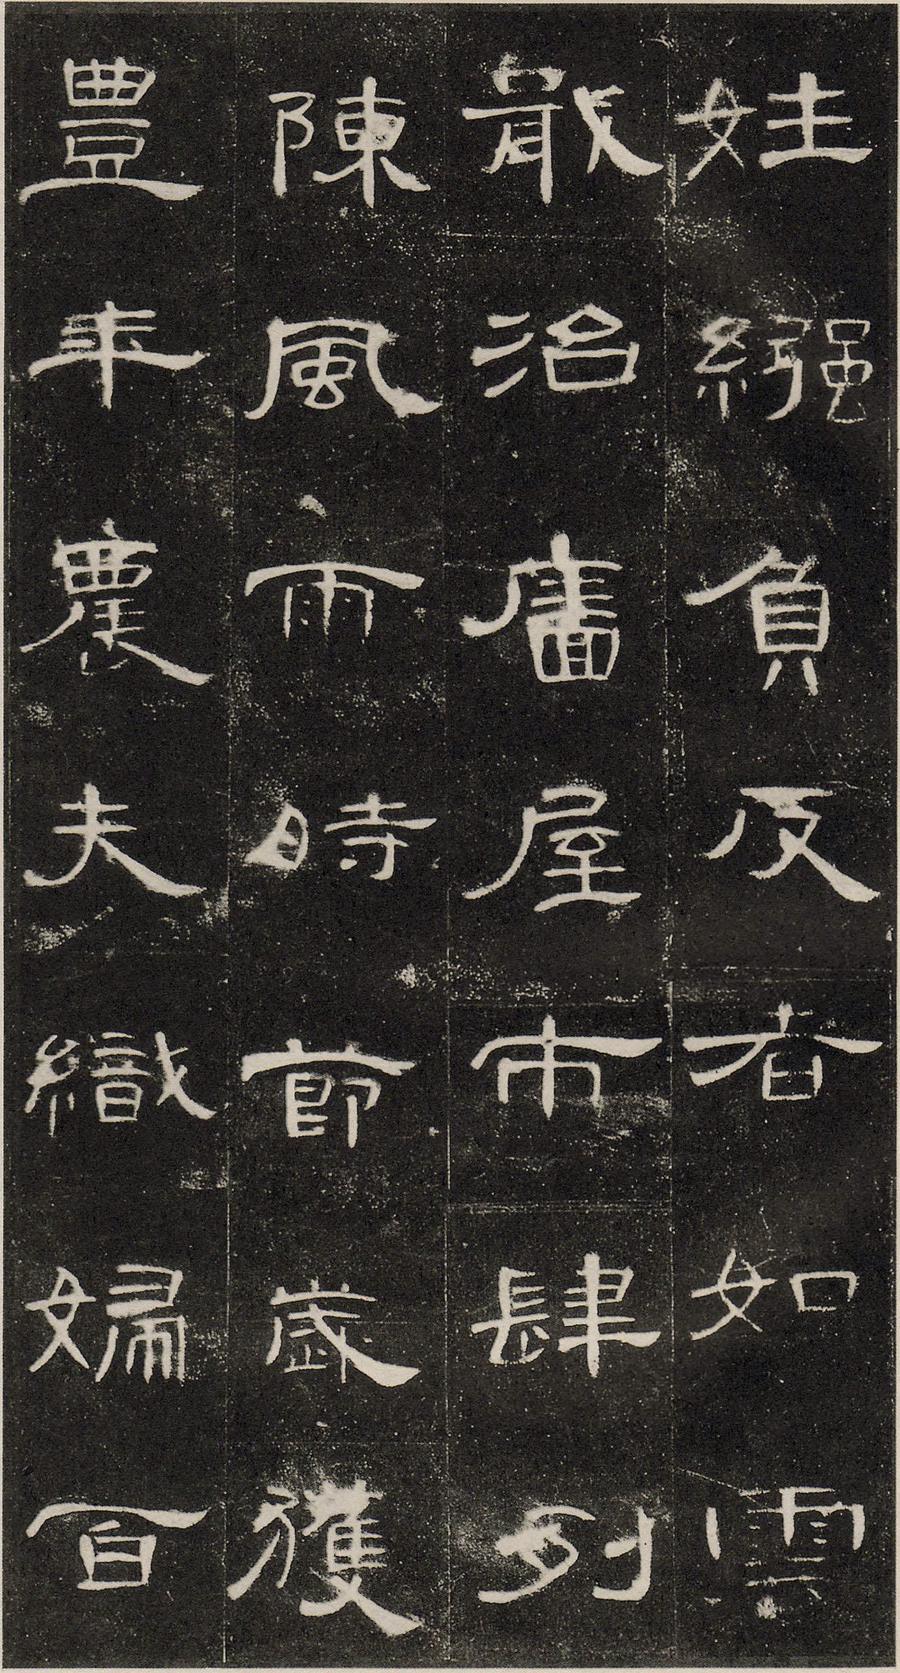 姓繦負反者如雲
戢治廧屋市肆列
陳風雨時節歲獲
豐年農夫織婦百